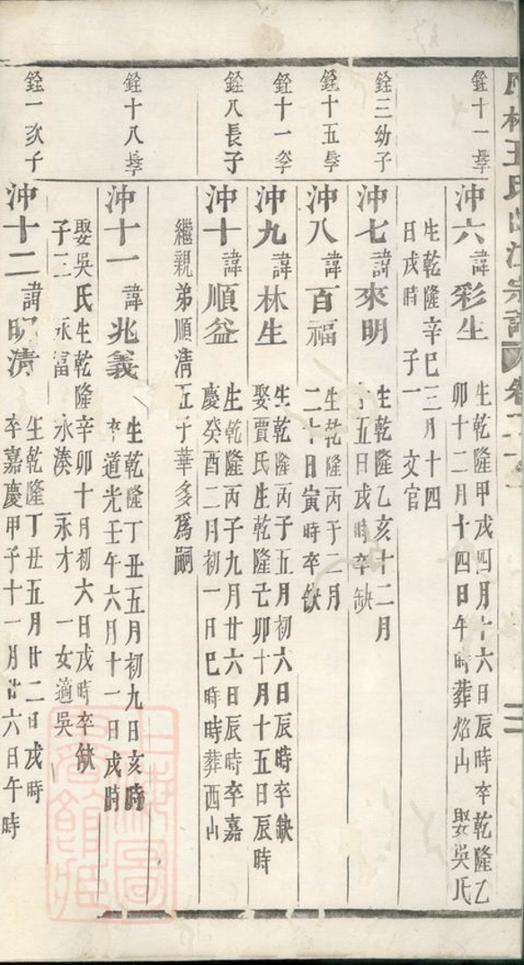 王氏 宗譜 卷二
三
銓十一 沖六 諱彩生 生乾隆甲戌四月十六日辰時卒乾隆乙
卯十二月十四日午時葬焰山 娶吳氏
生乾隆辛巳三月十四
日戌時 子一 文官
銓三幼子 沖七 諱來明 生乾隆乙亥十二月
十五日戌時卒缺
銓十五 沖八 諱百福 生乾隆丙子二月
二十日寅時卒缺
銓十一 沖九 諱林生 生乾隆丙子五月初六日辰時卒缺
娶賈氏生乾隆己卯十月十五日辰時
銓八長子 沖十 諱順益 生乾隆丙子九月廿六日辰時卒嘉
慶癸酉二月初一日巳時葬西山
繼親弟順清五子華多爲嗣
銓十八 沖十一 諱兆義 生乾隆丁丑五月初九日亥時
卒道光壬午六月十一日戌時
娶吳氏生乾隆辛卯十月初六日戌時卒缺
子三 永富 永湊 永才 一女適吳
銓一次子 沖十二 諱明清 生乾隆丁丑五月廿二日戌時
卒嘉慶甲子十一月廿六日午時